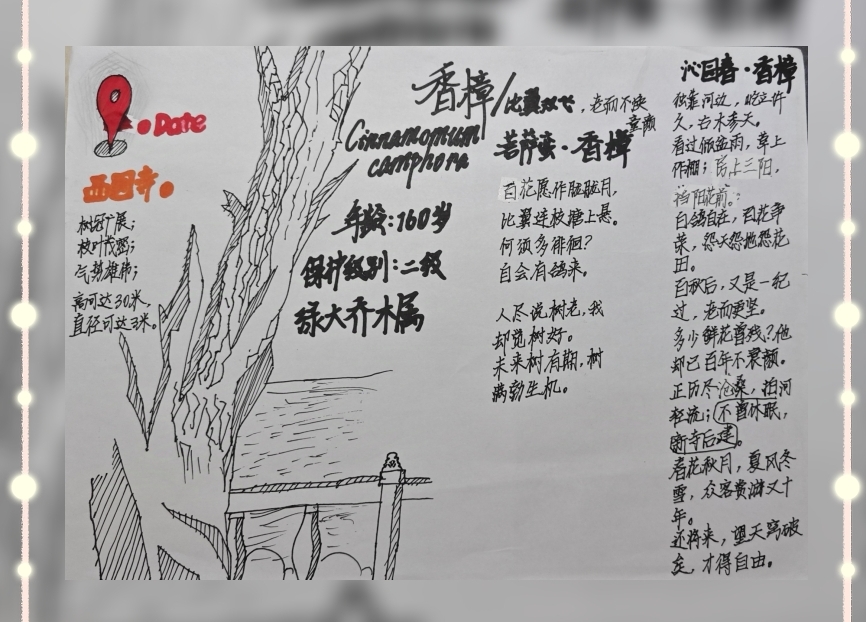 Date
西园寺。
树冠广展；
枝叶茂密；
气势雄伟；
高可达30米，
直径可达3米。
香樟/比翼双飞，老而不
Cinnamomum
camphora
年龄：160岁
保护级别：二级
绿大乔木属
菩萨蛮·香樟
百花展作胧胧月，
比翼连枝塘上悬。
何须多徘徊？
自会有鸽来。
人尽说树老，我
却觉树好。
未来树有期，树
满勃生机。
沁园春·香樟
独靠河边，屹立许
久，古木参天。
看过倾盆雨，草上
作棚；
白鸽自在，百花争
荣，怨天怨地怨花
田。
百秋后，又是一纪
过，老而更坚。
多少鲜花曾残？他
却已百年不衰颜。
正历尽沧桑，拍河
轻流；不曾休眠，
断寺后建。
春花秋月，夏风冬
雪，众客赏游又十
年。
还将来，望天窝破
矣，才得自由。